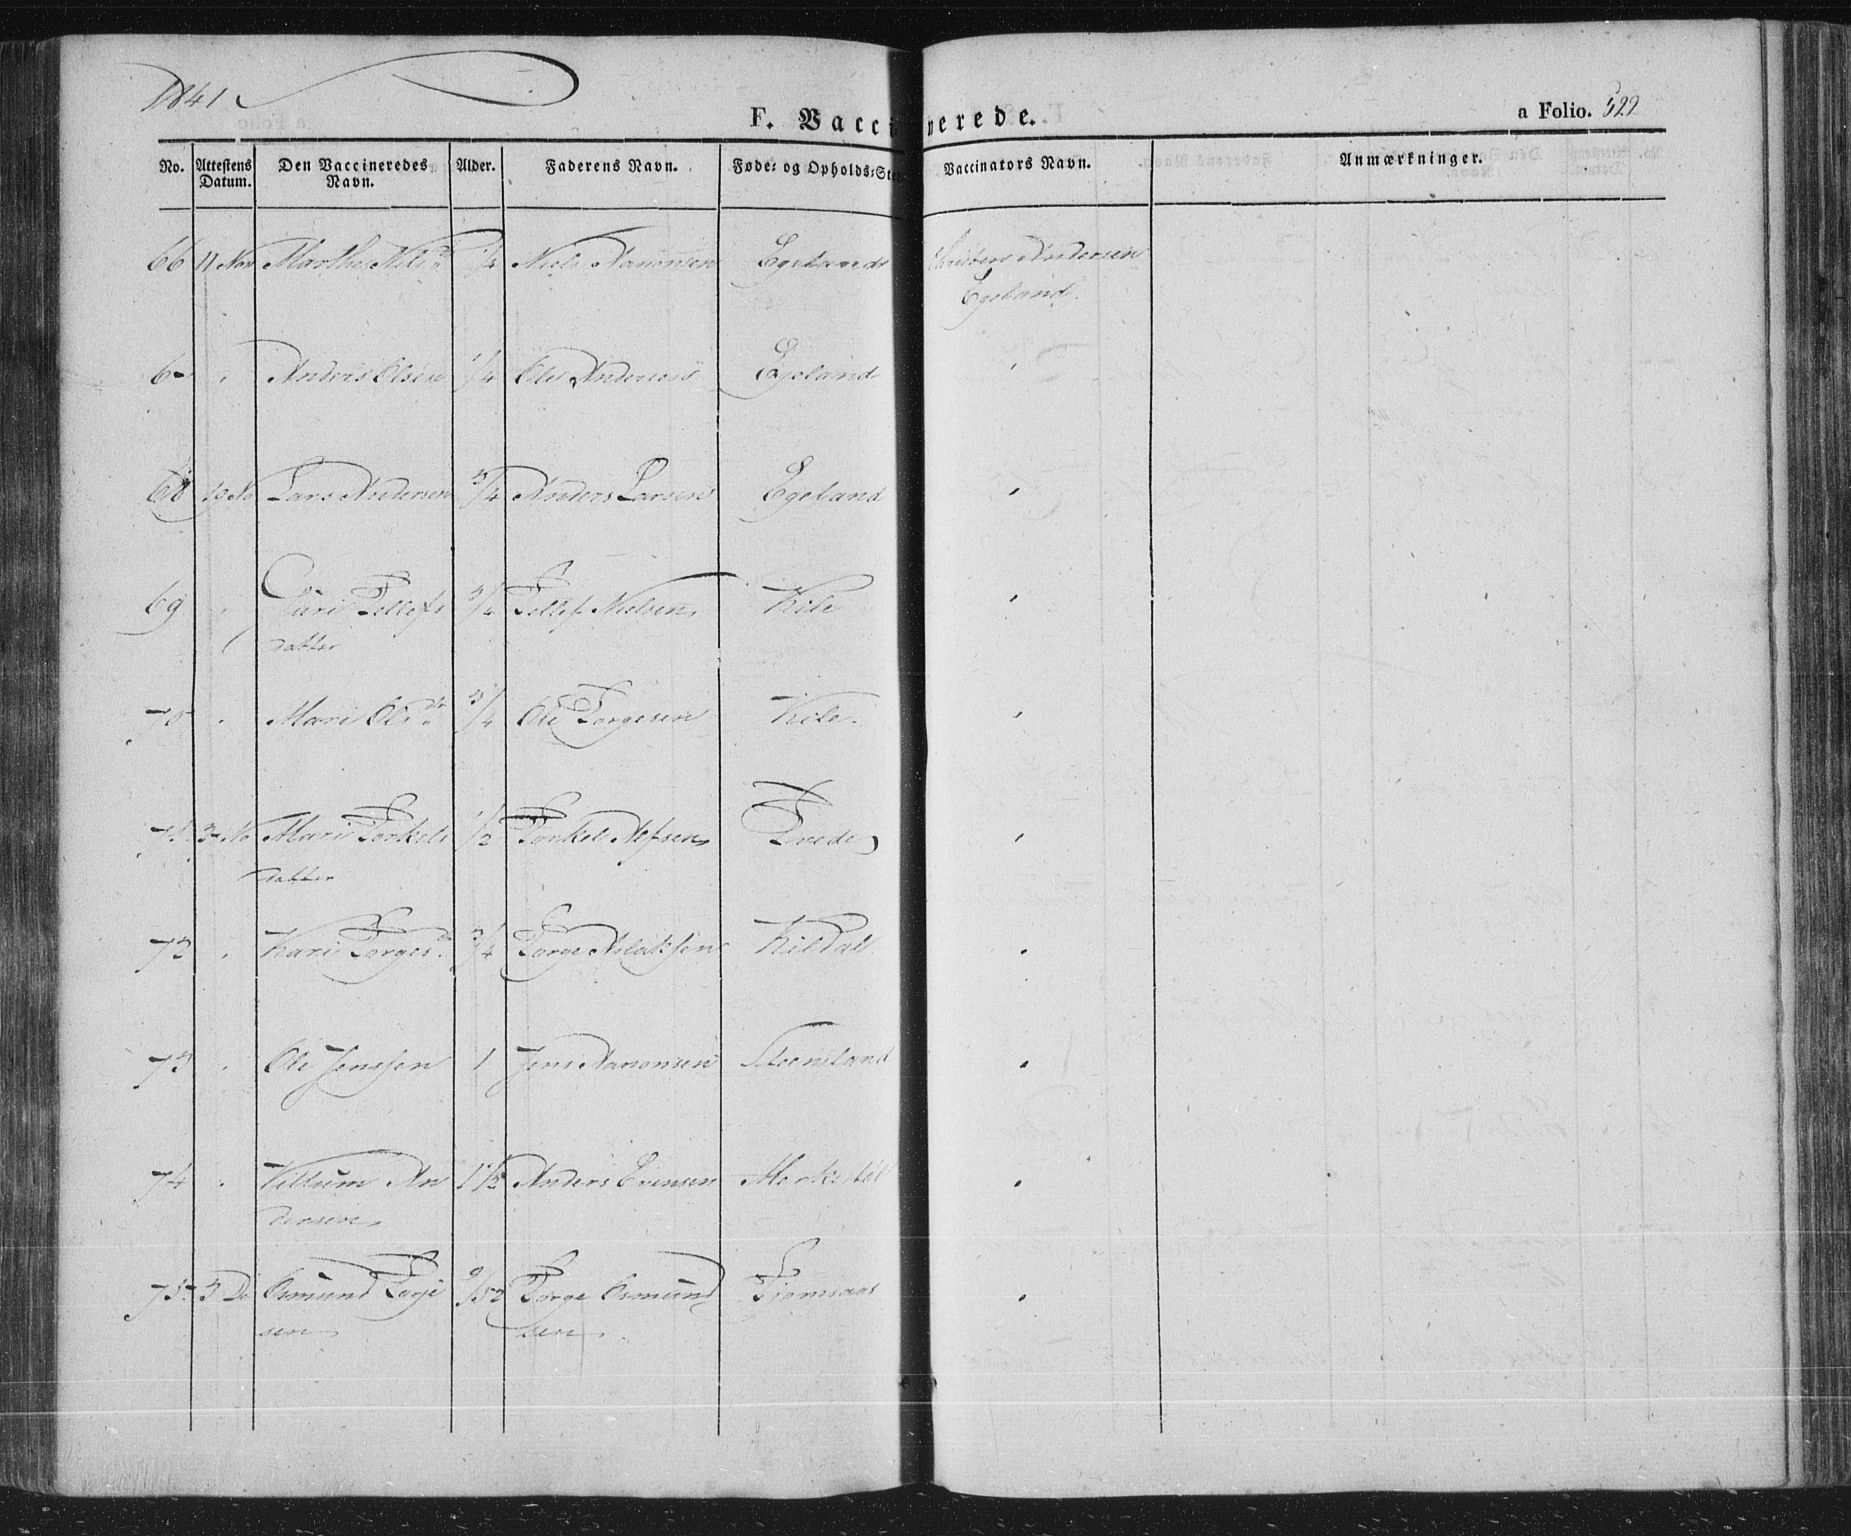 1841
F. Vaccinerede.
a Folio. 522
No. Attestens Datum. Den Vaccineredes Navn. Alder. Faderens Navn. Føde- og Opholds-Sted Vaccinators Navn. Anmærkninger.
66 11 Nov Marthe Nils dr 1/4 Niels Aanonsen Egeland Christen Andersen
Egeland
6 " Anders Olsen 1/4 Ole Andersen Egeland "
68 19 No Lars Andersen 3/4 Anders Larsen Egeland "
69 " Guri Tellefs 3/4 Tellef Nielsen Kile "
datter
70 " Mari Ols dr 3/4 Ole Torgesen Kile "
71 No Mari Torkels 1/2 Torkel Alfsen Tvede "
datter
72 " Kari Torges d 3/4 Torge Aslaksen Kildal "
73 " Ole Jenssen 1 Jens Aanonsen Steensland "
74 " Villum An 1 1/2 Anders Evensen "
dersen
75 3 De Osmund Torje 9/52 Torge Osmund "
sen sen